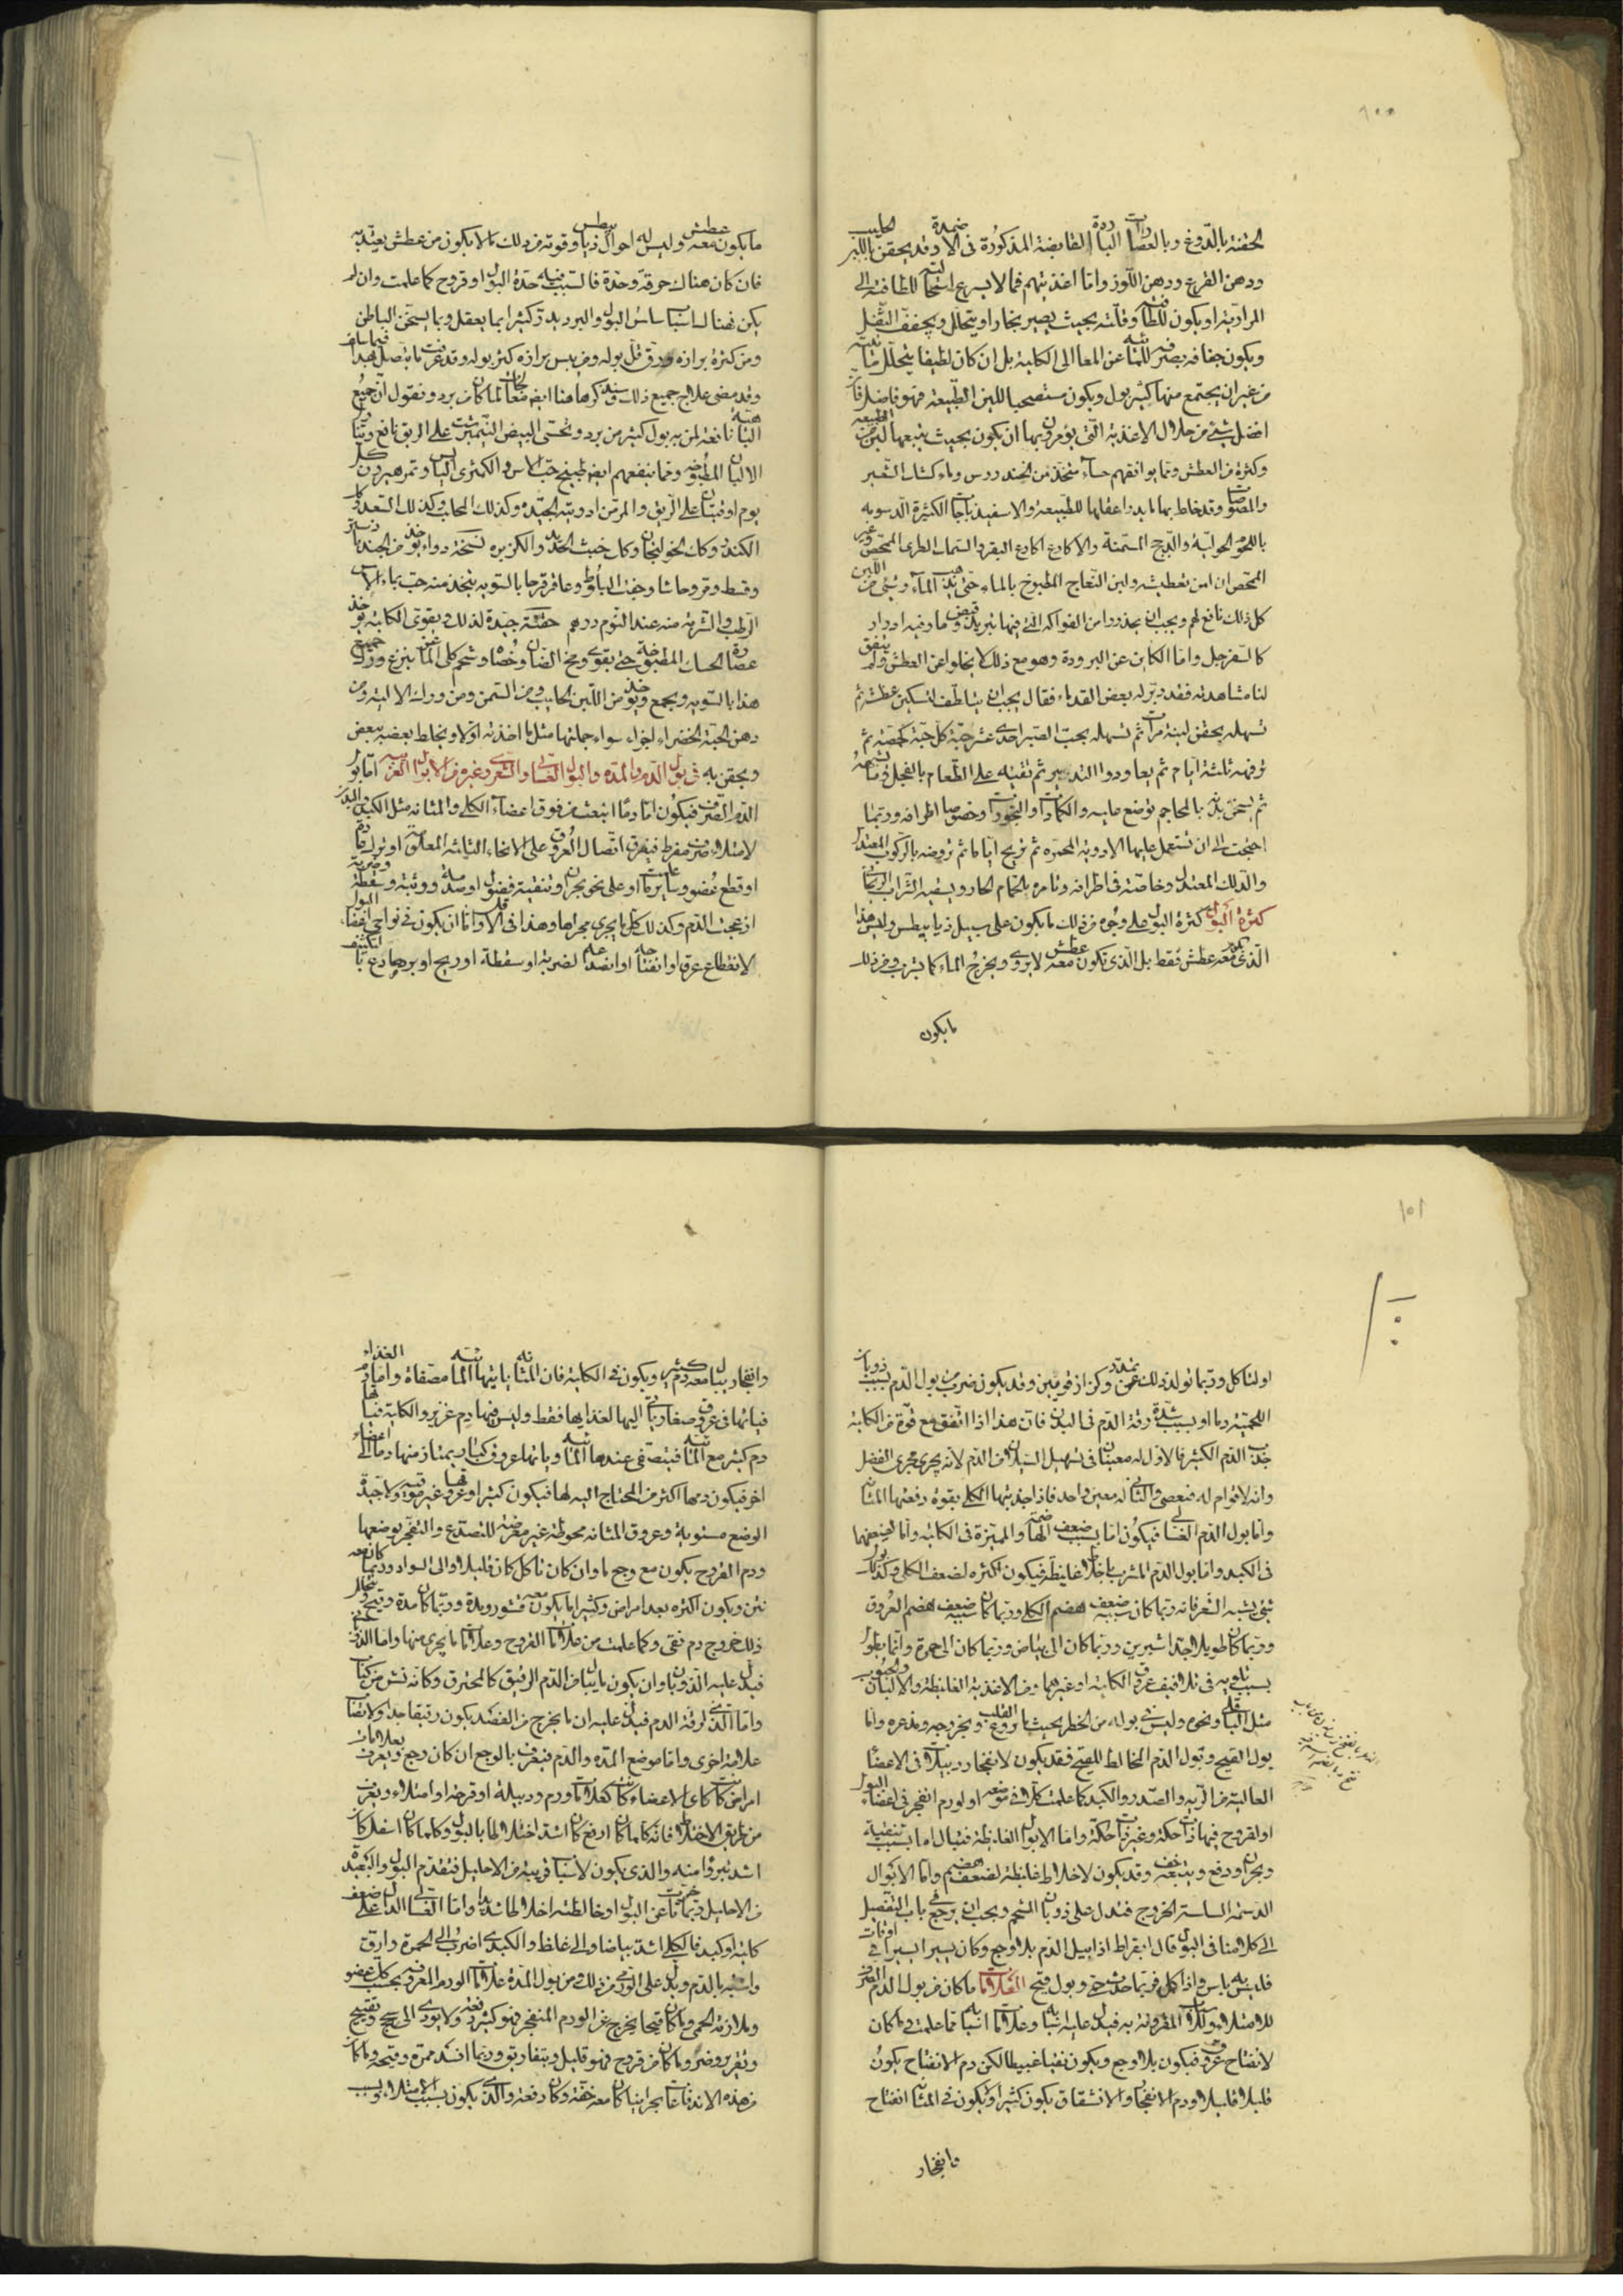 ١٠٠
الحقنة بالدوغ وبالعصارات الباردة القابضة المذكورة فى الاضمدة وقد يحقن باللبن الحليب
ودهن القرع ودهن اللوز واما اغذيتهم فما لا يسرع استحالته للطافته الى
المرارية او يكون للطافته وقلته بحيث يصير بخارا ويتحلل ويجفف الثفل
ويكون جفافه بصرفه للمائية عن المعا الى الكلية بل ان كان لطيفا يتحلل مائيته
من غير ان يجتمع منها كثير بول ويكون مستصحبا للين الطبيعة فهو فاضل فان
افضل شئ من خلال الاغذية التى يؤمرون بها ان يكون بحيث يتبعها لين من الطبيعة
وكثرة من العطش ومما يوافقهم حساء متخذ من الخندروس وماء كشك الشعير
والمصوصات وقد خلط بها ما يدر اعقالها للطبيعة والاسفيذباجات الكثيرة الدسومة
باللحوم الحولية والدجج المسمنة والاكارع اكارع البقر والسمك الطرى المحمض وغير
المحمض ان امن تعطيشه ولبن النعاج المطبوخ بالماء حتى يذهب الماء وشئ من اللبن
كل ذلك نافع لهم ويجب ان يحذروا من الفواكه التى فيها تبريد وقبض ما وفيه ادرار
كالسفرجل واما الكاين عن البرودة وهو مع ذلك لا يخلوا عن العطش ولم يتفق
لنا مشاهدته فقد دبر له بعض القدماء فقال يجب ان يتلطف لتسكين عطشه ثم
تسهله بحقن لينة مرات ثم تسهله بحب الصبر احدى عشر حبة كل حبة كحمصة ثم
ترفهه ثلثة ايام ثم يعاودوا التدبير ثم تقيئه على الطعام بالفجل وما يشبهه
ثم يسخن بدنه بالمحاجم توضع عليه والكمادات والبخورات وخصوصا اطرافه وربما
احتجت الى ان تستعمل عليها الادوية المحمرة ثم تريح اياما ثم تروضه بالركوب المعتدل
والدلك المعتدل وخاصة فى اطرافه وتامره بالحمام الحار ويسقيه الشراب الريحانى
كثرة البول كثرة البول على وجوه من ذلك ما يكون على سبيل ذيابيطس وليس هذا
الذى معه عطش فقط بل الذى تكون معه عطش لا يروى ويخرج الماء كما يشرب ومن ذلك
ما يكون
ما يكون معه عطش وليس له احوال ذيابيطس وقوته من ذلك ما لا يكون من عطش يعتد به
فان كان هناك حرقة وحدة فالسبب فيه حدة البول او قروح كما علمت وان لم
يكن فهنالك اسباب سلس البول والبرد يدر كثيرا بما يعقل وبما يسخن الباطن
ومن كثرة برازه ورق قل بوله ومن يبس برازه كثر بوله وقد عرفت ما يتصل بهذا فيما سلف
وقد مضى علاج جميع ذلك وسنذكر هاهنا ايضا معالجات لما كان من برد ونقول ان جميع
الباهية نافعة لمن به بول كثير من برد وتحسى البيض النيمبرشت على الريق نافع وتناول
الالبان المطبوخة ومما ينفعهم ايضا طبيخ حب الاس والكمثرى اليابس وتمر هيرون كل
يوم اوقيتان على الريق والمر من ادويته الجيدة وكذلك المحلب وكذلك السعد وكذا
الكندر وكذلك الخولنجان وكل خبث الحديد والكزبره نسخة دواء يوخذ من الجندبادستر
وقسط ومر وحاشا وجفت البلوط وعاقرقرحا بالسويه يتخذ منه حب بماء الاس
الرطب والشربة منه عند النوم درهم حقنة جيدة لذلك ويقوى الكلية يوخذ
عصارة الحسك المطبوخة حتى تقوى ومخ الضان وخصاه وشحم كلى الماعز بنزع وزنك جميع
هذا بالسويه ويجمع ويوخذ من اللبن الحليب ومن السمن ومن ودك الالية ومن
دهن الحبة الخضراء اجزاء سواء جملتها مثل ما اخذته اولا ويخلط بعضه ببعض
ويحقن به فى بول الدم والمدة والبول الغسالى والشعرى وغيره من الابوال الغريبه اما بول
الدم الصرف فيكون اما دما انبعث من فوق اعضاء الكلى والمثانه مثل الكبد والبدن
لامتلاء صرف مفرط فيفرق اتصال العروق على الانحاء الثلثه المعلومة او ترك رياضة
او قطع عضو وساير ما علمت او على نحو بحران وتنقية فضول او صدمة ووثبة وسقطة وضربة
ازعجت الدم وكذلك كل ما يجرى مجراها وهذا فى الاقل واما ان يكون فى نواحى اعضاء البول
لانقطاع عرق او انفتاحه او انصداعه لضربة او سقطة او ريح او برد صادع بالتكثيف
١٠١
او لتاكل وربما تولد ذلك عن تمدد وكزاز قويين وقد يكون ضرب من بول الدم بسبب ذوبان
اللحمية دما او بسبب شدة رقة الدم فى البدن فان هذا اذا اتفق مع قوة من الكلية
جذب الدم الكثير فالاول له معينان فى تسهيل السيلان الدم لانه يجرى مجرى الفضل
وانه لا قوام له فيعصى والثانى له معين واحد فاذا جذبتها الكلى بقوة دفعتها المثانة
واما بول الدم الغسالى فيكون اما بسبب ضعف الهاضمة والمميزة فى الكلية واما لضعفهما
فى الكبد واما بول الدم المشرب باخلاط غليظة فيكون اكثره لضعف الكلى وكذلك بول
شئ يشبه الشعر فانه ربما كان سببه ضعف هضم الكلى وربما كان سببه ضعف هضم العروق
وربما كان طويلا جدا شبرين وربما كان الى بياض وربما كان الى حمرة وانما يطول
بسبب تلويه فى تلافيف عروق الكلية او غيرهما ومن الاغذية الغليظة والالبان والحبوب
مثل الباقلى ونحوه وليس فى بوله من الخطر بحيث ما يروع القلب بخروجه وبذعره واما
بول القيح وبول الدم المخالط للقيح فقد يكون لانفجار دبيلات فى الاعضا
العالية من الرية والصدر والكبد كما علمت كلا فى موضعه او لورم انفجر فى اعضاء البول
او لقروح فيها ذات حكة وغير ذات حكة واما الابوال الغليظة فتبال اما بسبب تنقية
وبحران ودفع ويتبعه خف وقد يكون لاخلاط غليظة لضعف هضم واما الابوال
الدسمة السلسة الخروج فتدل على ذوبان الشحم ويجب ان يرجع فى باب التفصيل
الى كلامنا فى البول قال ابقراط اذا بيل الدم بلا وجع وكان يسيرا يسيرا فى اوقات
فليس به باس واذا كمل فربما حدث حمى وبول قيح العلامات ما كان من بول الدم الصرف
للامتلاء ولتلك المقرونة به فيدل عليه اسبابه وعلامات اسبابه مما علمت فى ما كان
لانفتاح عروق فيكون بلا وجع ويكون نقيا عبيطا لكن دم الانفتاح يكون
قليلا قليلا ودم الانفجار والانشقاق يكون كثيرا ويكون فى المثانه انفتاح
وانفجار
وانفجار يتبعه دم كثير ويكون فى الكلية فان المثانه ياتيها المائية مصفاة واما دم الغذاء
فياتها فى عروق صغار تاتى اليها لغذايها فقط وليس فيها دم غزير والكلية فياتيها
دم كثير مع المائية فيتصفى عندها المائية وياتها عروق كبار يمتاز منها دما الى اعضاء
اخر فيكون دمها اكثر من المحتاج اليه لها فيكون كثيرا وعروقها غير موثقة ولا جيدة
الوضع مستوية وعروق المثانه محوطة غير معرضة للتصدع والتفجر بوضعها
ودم القروح يكون مع وجع ما وان كان تاكل كان قليلا والى السواد وربما كان معه
نتن ويكون اكثره بعد امراض وكثيرا ما يكون معه قشور وبدة وربما كان مدة وقيح ويخالط
ذلك خروج دم نقى وكما علمت من علامات القروح وعلامات ما يجرى منها واما الذى عن
فيدل عليه الذوبان وان يكون ما ينساب من الدم الرقيق كالمحترق وكانه نش من كباب
واما الذى لرقة الدم فيدل عليه ان ما يخرج من الفصد يكون رقيقا جدا ولا نضا
علامة اخرى واما موضع المدة والدم فيعرف بالوجع ان كان وجع ويعرف بعلامات
امراض كاى الاعضاء كانت كعلامات ورم ودبيلة او قرحة او امتلاء ويعرف
من طريق الاختلاط فانه كلما كان ارفع كان اشد اختلاطا بالبول وكلما كان اسفل كان
اشد تبرؤا منه والذى يكون لاسباب قريبة من الاحليل فتقدم البول والبعيدة
من الاحليل ربما تاخرت عن البول او خالطته اختلاطا شديدا واما الغسالى الدال على ضعف
كلية او كبد فالكلى اشد بياضا والى غلظ والكبدى اضرب الى الحمرة وارق
واشبه بالدم ويدل على الورمى من ذلك ومن بول المدة علامات الورم المعروفه بحسب كل عضو
وملازمة الحمى وما كان قيحا يخرج عن الورم المنفجر فهو كثير دفعة ولا يؤدى الى سحج وتقييح
وتقرير وضر وما كان من قروح فهو قليل ويتفارق وربما انسد ممره وقيحه وما كان
من هذه الاندفاعات بحرانيا كان معه خفة وكان دفعة والذى يكون بسبب الامتلاء وبسبب